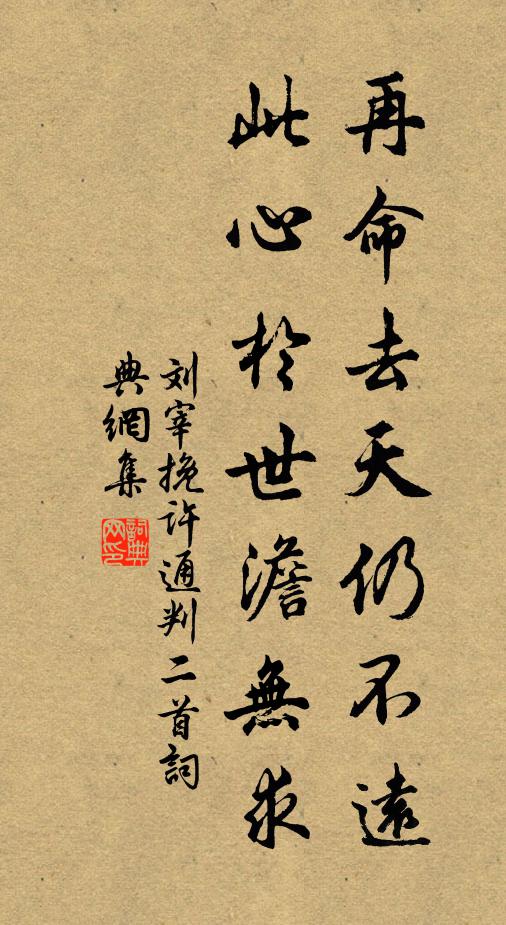 再命去天仍不遠
此心於世澹無求
刘宰挽许通判二首詞
典網集
詞典网印